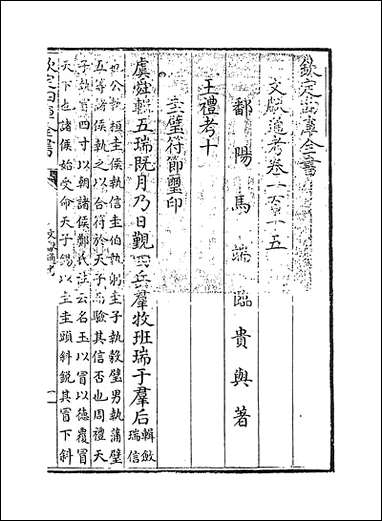 欽定四庫全書
文獻通考卷一百十五
鄱陽馬端臨貴與著
王禮考十
圭璧符節璽印
虞舜輯五瑞既月乃日覲四岳羣牧班瑞于羣后輯斂
瑞信
也公執桓圭侯執信圭伯執躬圭子執穀璧男執蒲璧
五等諸侯執之以合符於天子而驗其信否也周禮天
子執冒四寸以朝諸侯鄭氏註云名玉以冒以德覆冒
天下也諸侯始受命天子錫以圭圭頭斜銳其冒下斜
欽定四庫全書
文獻通考
一